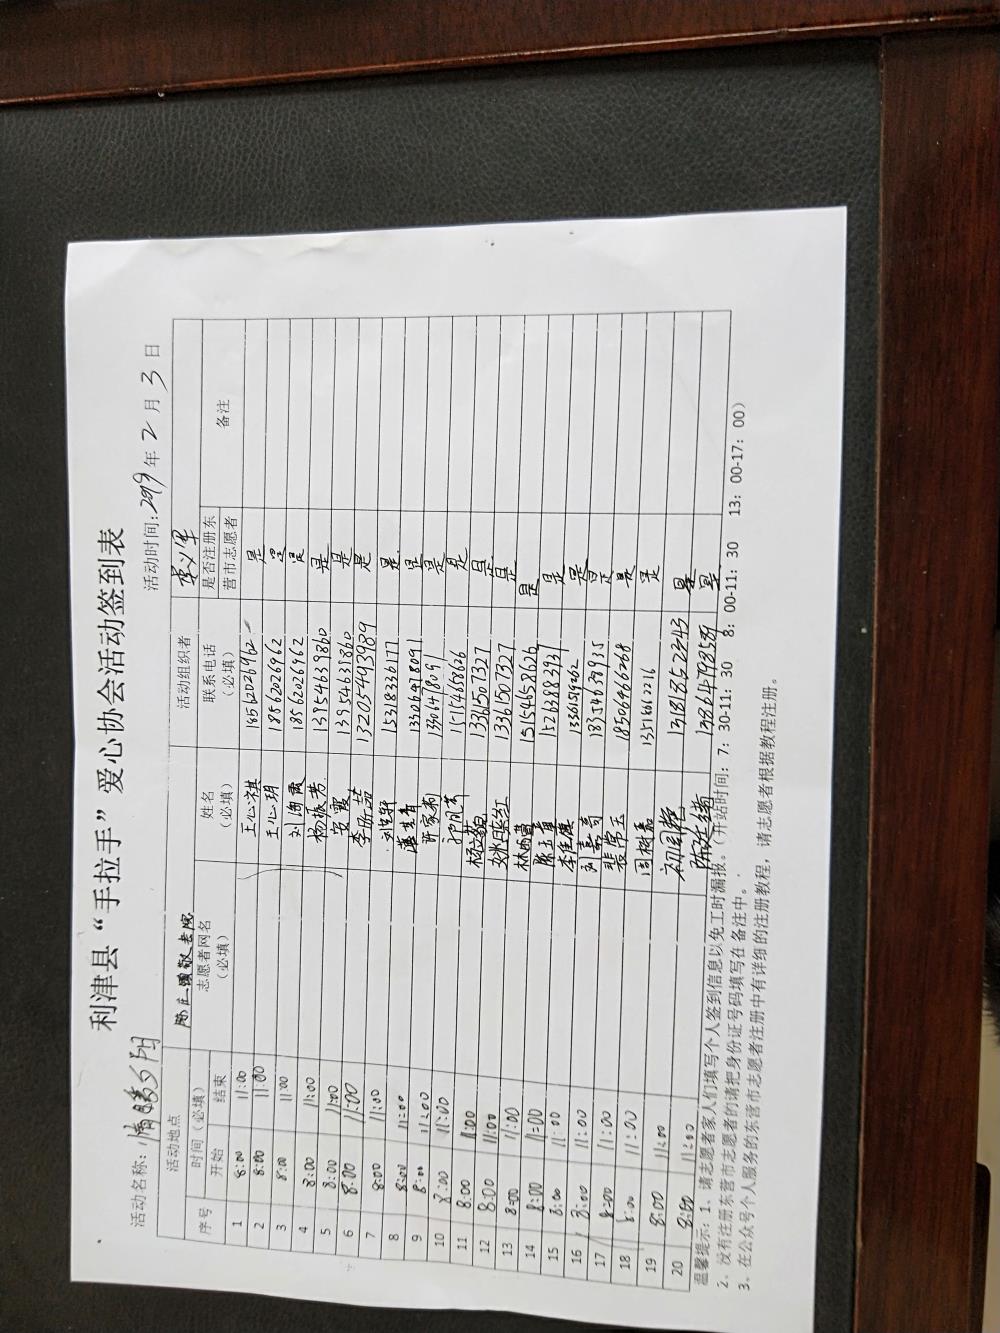 利津县“手拉手”爱心协会活动签到表
活动名称：情暖夕阳 活动时间：2019年2月3日
活动地点 陈庄镇敬老院 活动组织者
序号 时间（必填） 志愿者网名（必填） 姓名（必填） 联系电话（必填） 是否注册东营市志愿者 备注
开始 结束
1 8:00 11:00 王心祺 18562026962 是
2 8:00 11:00 王心玥 18562026962 是
3 8:00 11:00 刘海霞 18562026962 是
4 8:00 11:00 杨振芳 13754639860 是
5 8:00 11:00 安霞 是
6 8:00 11:00 李 13205493989 是
7 8:00 11:00 15318336177 是
8 8:00 11:00 13306478091 是
9 8:00 11:00 许家莉 13306478091 是
10 8:00 11:00 15154658626 是
11 8:00 11:00 13361507327 是
12 8:00 11:00 姚 红 13361507327 是
13 8:00 11:00 林 15154658626 是
14 8:00 11:00 陈 15263883931 是
15 8:00 11:00 李佳 是
16 8:00 11:00 刘 18354639935 是
17 8:00 11:00 裴常玉 18506466268 是
18 8:00 11:00 周树嘉 是
19 8:00 11:00 初 13181857243 是
20 8:00 11:00 陈延 13864793589 是
温馨提示：1、请志愿者家人们填写个人签到信息以免工时漏报。（开站时间：7：30-11：30 8：00-11：30 13：00-17：00）
2、没有注册东营市志愿者的请把身份证号码填写在备注中。
3、在公众号个人服务的东营市志愿者注册中有详细的注册教程，请志愿者根据教程注册。